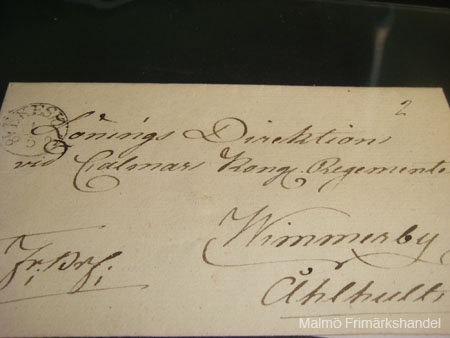 2
Lönings Direktion
vid Calmar Kong. Regemente
Wimmerby
Fr: Brf:
Åhlhult
Malmö Frimärkshandel